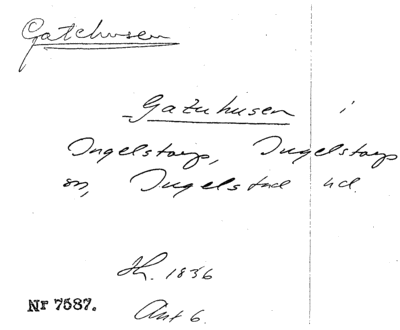 Gatehusen
Gatuhusen i
Ingelstorp, Ingelstorps
sn, Ingelstad hd.
H. 1836
Nr 7587.
Ant 6.